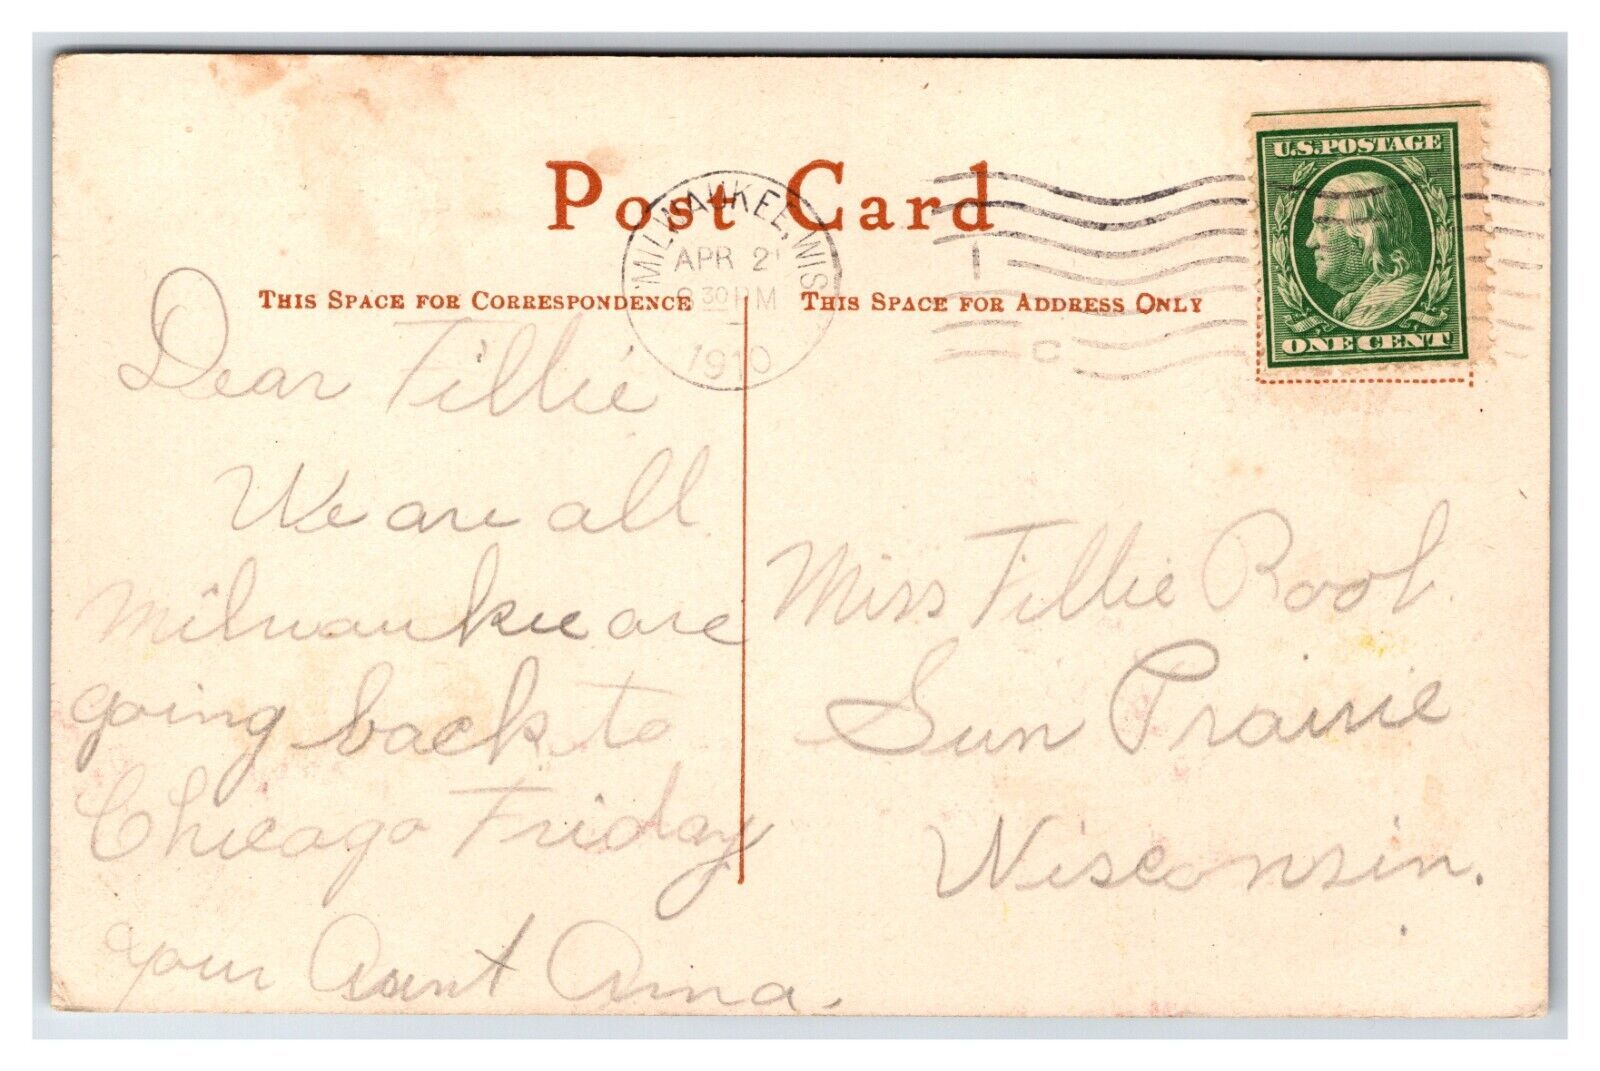 Post Card
MILWAUKEE, WIS
APR 21
30 PM
1910
U.S. POSTAGE
ONE CENT
THIS SPACE FOR CORRESPONDENCE
THIS SPACE FOR ADDRESS ONLY
Dear Tillie
We are all
Milwaukee are
going back to
Chicago Friday
your Aunt Anna.
Miss Tillie Root
Sun Prairie
Wisconsin.